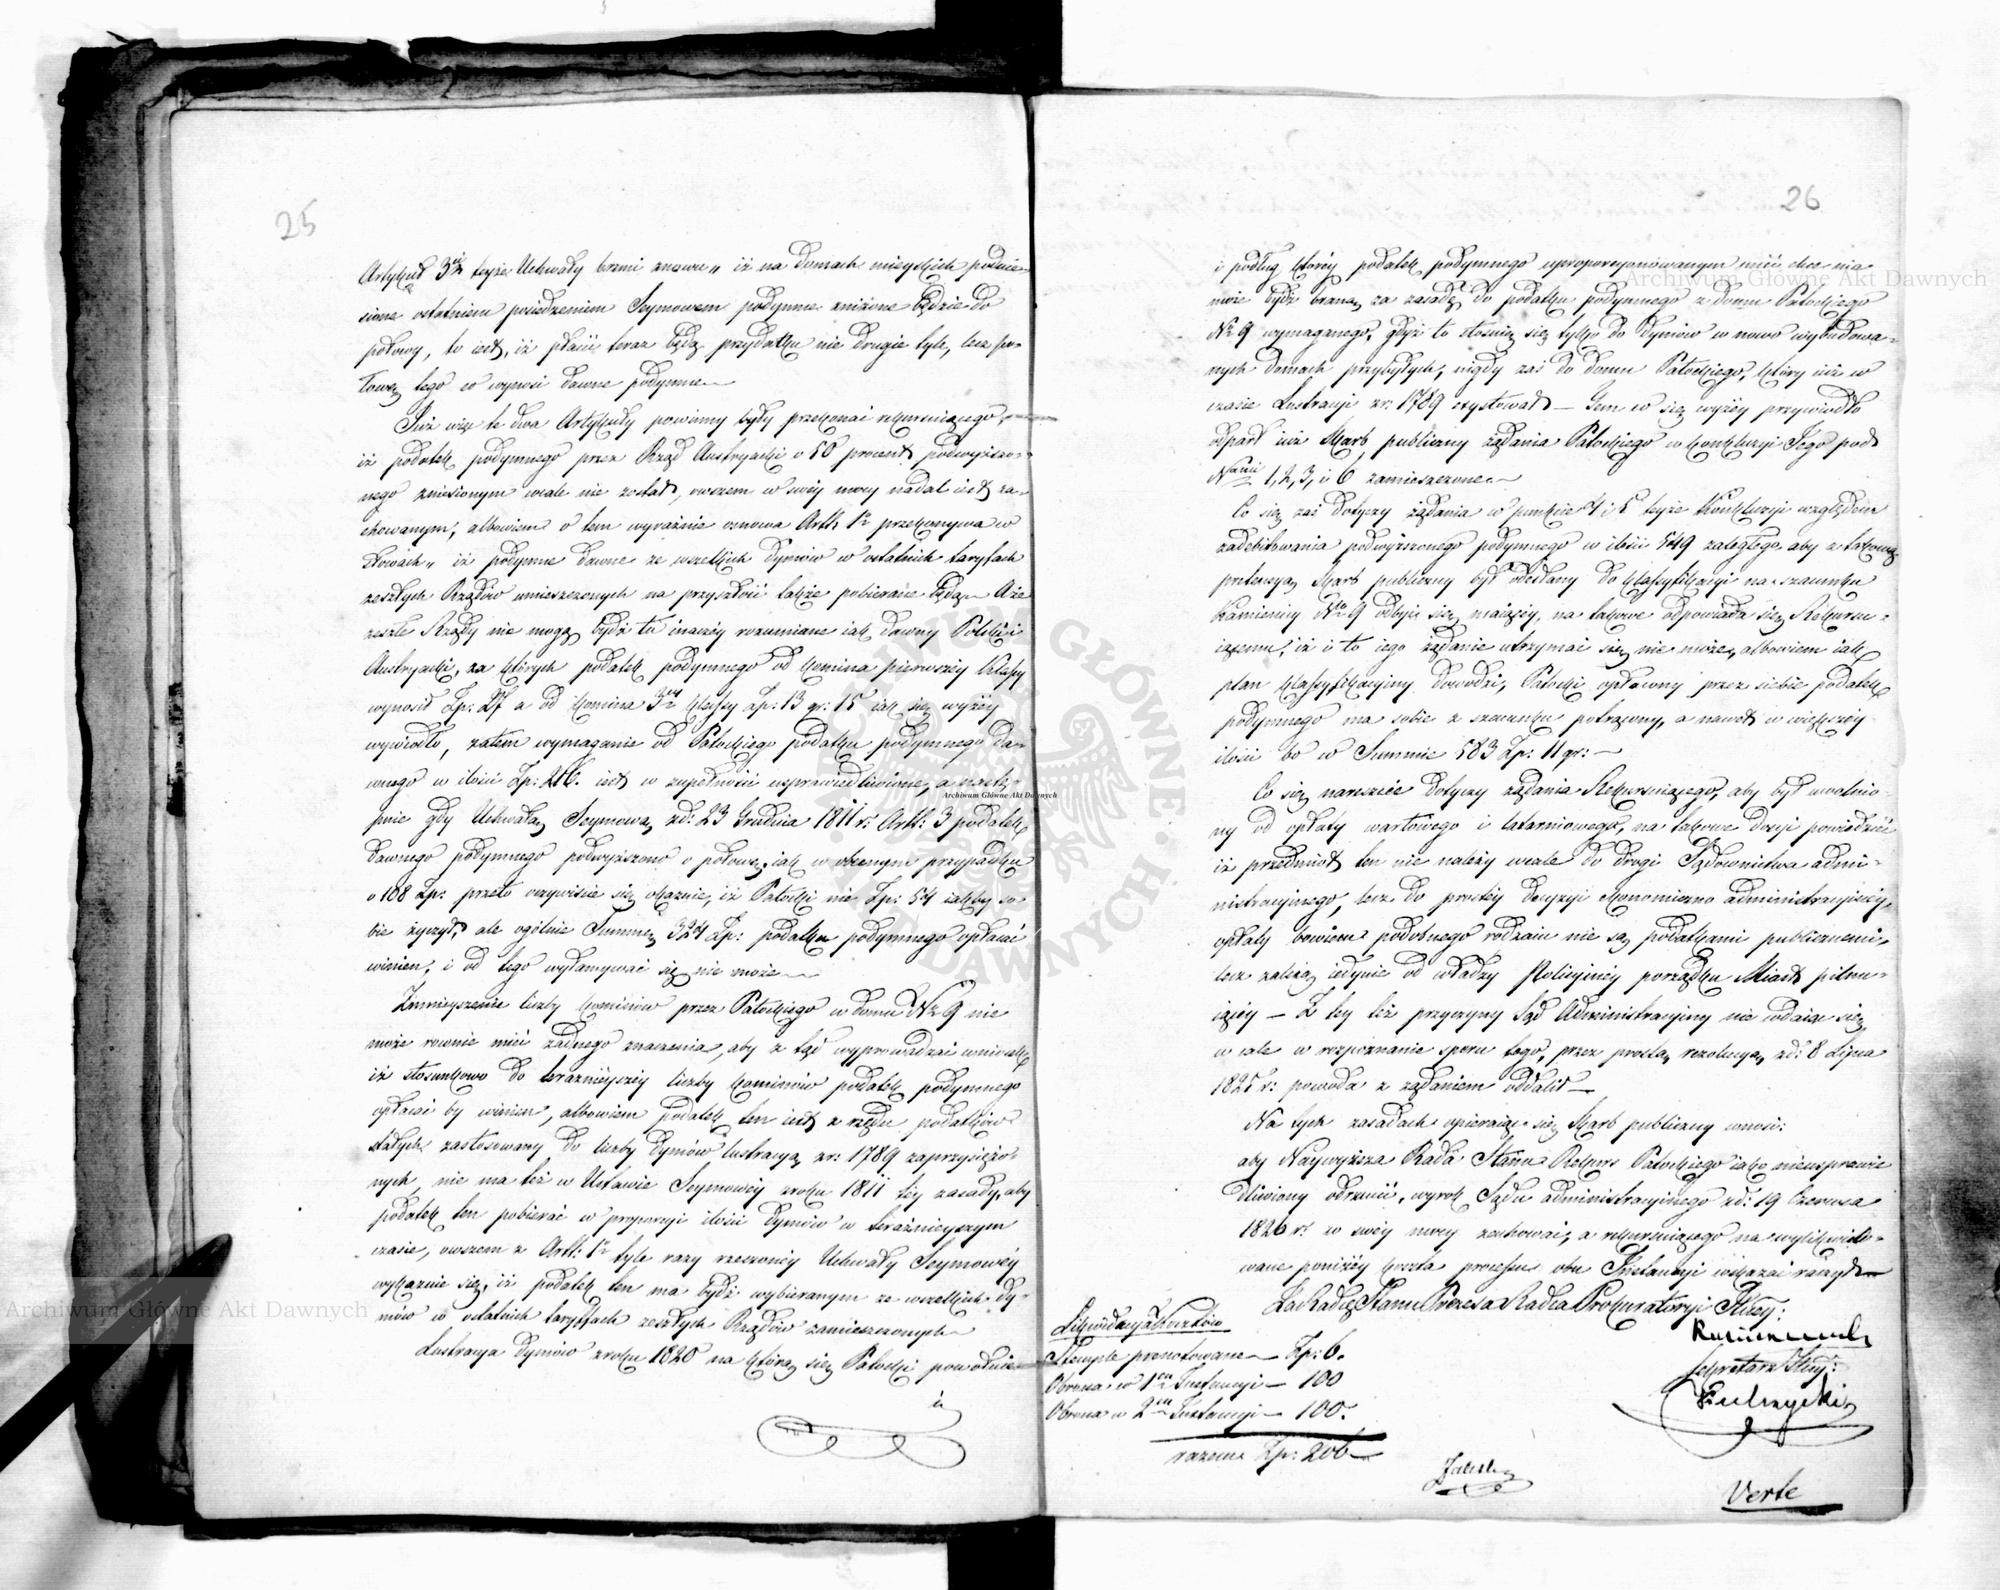 25
Artykuł 3ci teyże Uchwały brzmi znowu „ iż na domach mieyskich podnie-
sione ostatniem posiedzeniem Seymowem podymne zniżone będzie do
połowy, to iest, iż płacić teraz będą przydatku nie drugie tyle, lecz po-
łowę tego co wynosi dawne podymne
Już więc te dwa Artykuły powinny były przekonać rekurruiącego,
iż podatek podymnego przez Rząd Austryacki o 50 procent podwyższo-
nego zniesionym wcale nie został, owszem w swéy mocy nadal iest za-
chowanym, albowiem o tem wyraźnie osnowa Artłu 1o przekonywa w
słowach „ iż podymne dawne ze wszelkich dymów w ostatnich taryfach
zeszłych Rządów umieszczonych na przyszłość także pobierane będą A że
zeszłe Rządy nie mogą bydź tu inaczéy rozumiane iak dawny Polski i
Austryacki, za których podatek podymnego od komina pierwszéy klassy
wynosił Zp: 27 a od komina 3ciéy klassy Zp: 13 gr: 15 iak się wyżéy
wywiodło, zatém wymaganie od Patockiego podatku podymnego da-
wnego w ilości Zp: 216. iest w zupełności usprawiedliwione, a nastę-
pnie gdy Uchwałą Seymową zd: 23 Grudnia 1811 r: Artł: 3 podatek
dawnego podymnego podwyższono o połowę, iak w obecnym przypadku
o 108 Zp: przeto oczywiście się okaznie, iż Patocki nie Zp: 54 iakby so-
bie życzył, ale ogólnie Summę 324 Zp: podatku podymnego opłacać
winien, i od tego wyłamywać się nie może
Zmnieyszenie liczby kominów przez Patockiego w domu No 9 nie
może rownie mieć żadnego znaczenia, aby z tąd wyprowadzać wniosek,
iż stosunkowo do teraznieyszéy liczby kominów podatek podymnego
opłacać by winien, albowiem podatek ten iest z rzędu podatków
stałych zastosowany do liczby dymów lustracyą zr: 1789 zaprzysiężo-
nych, nie ma téż w Ustawie Seymowéy zroku 1811 téy zasady, aby
podatek ten pobierać w proporcyi ilości dymów w teraźnieyszym
czasie, owszem z Artł: 1o tyle razy rzeczonéy Uchwały Seymowéy
wykaznie się, iż podatek ten ma bydź wybieranym ze wszelkich dy-
mów w ostatnich taryfach zeszłych Rządów zamieszczonych
Lustracya dymów zroku 1820 na którą się Patocki powołuie
i
26
i podług któréy podatek podymnego uproporcyonowanym mieć chce nie
może bydź braną za zasadę do podatku podymnego z domu Patockiego
No 9 wymaganego, gdyż to stosuie się tylko do dymów w nowo wybudowa-
nych domach przybyłych, nigdy zaś do domu Patockiego, który iuż w
czasie Lustracyi zr: 1789 exystował — Tem co się wyżéy przywiodło
odparł iuż Skarb publiczny żądania Patockiego w konkluzyi Jego pod
Nami 1, 2, 3, i 6 zamieszczone
Co się zaś dotyczy żądania w punkcie 4 i 5 teyże Konkluzyi względem
zadebitowania podwyższonego podymnego w ilości 549 zaległego, aby z takową
pretensyą Skarb publiczny był odesłany do klassyfikacyi na szacunku
Kamienicy No 9 odbydź się maiącéy, na takowe odpowiada się Rekurru-
iącemu, iż i to iego żądanie utrzymać się nie może, albowiem iak
plan klassyfikacyiny dowodzi, Patocki opłacony przez siebie podatek
podymnego ma sobie z szacunku potrącony, a nawet w większéy
ilości bo w Summie 583 Zp: 11 gr: —
Co się nareszcie dotyczy żądania Rekurruiącego, aby był uwolnio-
ny od opłaty wartowego i latarniowego, na takowe dosyć powiedzieć
iż przedmiot ten nie należy wcale do drogi Sądownictwa admi-
nistracyinego, lecz do prostéy decyzyi ekonomiczno administracyinéy,
opłaty bowiem podobnego rodzaiu nie są podatkami publicznemi,
lecz zależą iedynie od władzy Policyinéy porządku Miast pilnu-
iącéy — Z téy téż przyczyny Sąd Administracyiny nie wdaiąc się
w cale w rozpoznanie sporu tego, przez prostą rezolucyą zd: 8 Lipca
1825 r: powoda z żądaniem oddalił —
Na tych zasadach opieraiąc się Skarb publiczny wnosi:
aby Naywyższa Rada Stanu Rekurs Patockiego iako nieusprawie-
dliwiony odrzucić, wyrok Sądu administracyinego zd: 19 Czerwca
1826 r: w swéy mocy zachować, a rekurruiącego na wylikwido-
wane poniżéy koszta processu obu Instancyi wskazać raczyła
Za Radcę Stanu Prezesa Radca Prokuratoryi Jlney:
Sekretarz Jlny:
Likwidacya kosztów
Stemple prenotowane — Zp: 6.
Obrona w 1éy Instancyi — 100
Obrona w 2éy Instancyi — 100.
razem Zp: 206 —
Verte
Archiwum Główne Akt Dawnych
Archiwum Główne Akt Dawnych
Archiwum Główne Akt Dawnych
ARCHIWUM GŁÓWNE AKT DAWNYCH